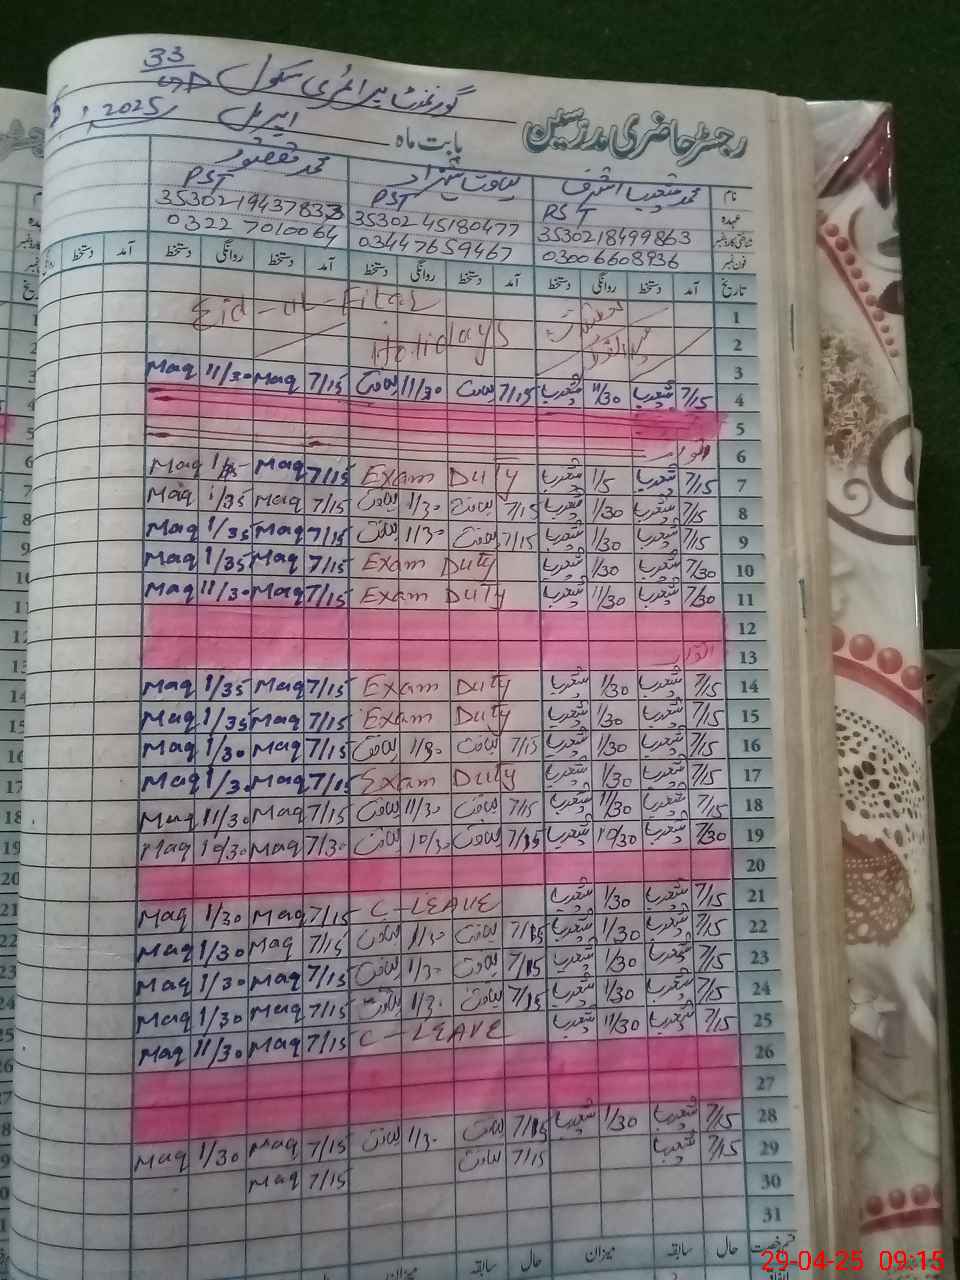 گورنمنٹ پرائمری سکول 33
رجسٹر حاضری مدرسین بابت ماہ اپریل 2025ء
نام محمد شعیب اشرف لیاقت شہزاد محمد مقصود
عہدہ PST PST PST
شناختی کارڈ نمبر 3530218499863 35302-45180477 35302-194378333
فون نمبر 03006608936 03447659467 0322 7010064
تاریخ آمد دستخط روانگی دستخط آمد دستخط روانگی دستخط آمد دستخط روانگی دستخط آمد
1 Eid-ul-Fitar
2 Holidays
3
4 7/15 شعیب 11/30 شعیب 7/15 لیاقت 11/30 لیاقت 7/15 Maq 11/30 Maq
5
6 اتوار
7 7/15 شعیب 1/5 شعیب Exam Duty 7/15 Maq Maq
8 7/15 شعیب 1/30 شعیب 7/15 لیاقت 1/30 لیاقت 7/15 Maq 1/35 Maq
9 7/15 شعیب 1/30 شعیب 7/15 لیاقت 1/30 لیاقت 7/15 Maq 1/35 Maq
10 7/30 شعیب 1/30 شعیب Exam Duty 7/15 Maq 1/35 Maq
11 7/30 شعیب 11/30 شعیب Exam Duty 7/15 Maq 11/30 Maq
12
13 اتوار
14 7/15 شعیب 1/30 شعیب Exam Duty 7/15 Maq 1/35 Maq
15 7/15 شعیب 1/30 شعیب Exam Duty 7/15 Maq 1/35 Maq
16 7/15 شعیب 1/30 شعیب 7/15 لیاقت 1/30 لیاقت 7/15 Maq 1/30 Maq
17 7/15 شعیب 1/30 شعیب Exam Duty 7/15 Maq 1/30 Maq
18 7/15 شعیب 11/30 شعیب 7/15 لیاقت 11/30 لیاقت 7/15 Maq 11/30 Maq
19 7/30 شعیب 10/30 شعیب 7/15 لیاقت 10/30 لیاقت 7/30 Maq 10/30 Maq
20
21 7/15 شعیب 1/30 شعیب C-LEAVE 7/15 Maq 1/30 Maq
22 7/15 شعیب 1/30 شعیب 7/15 لیاقت 1/30 لیاقت 7/15 Maq 1/30 Maq
23 7/15 شعیب 1/30 شعیب 7/15 لیاقت 1/30 لیاقت 7/15 Maq 1/30 Maq
24 7/15 شعیب 1/30 شعیب 7/15 لیاقت 1/30 لیاقت 7/15 Maq 1/30 Maq
25 7/15 شعیب 11/30 شعیب C-LEAVE 7/15 Maq 11/30 Maq
26
27
28 7/15 شعیب 1/30 شعیب 7/15 لیاقت 1/30 لیاقت 7/15 Maq 1/30 Maq
29 7/15 شعیب 7/15 لیاقت 7/15 Maq
30
31
قسم رخصت حال سابقہ میزان حال سابقہ میزان حال
29-04-25 09:15